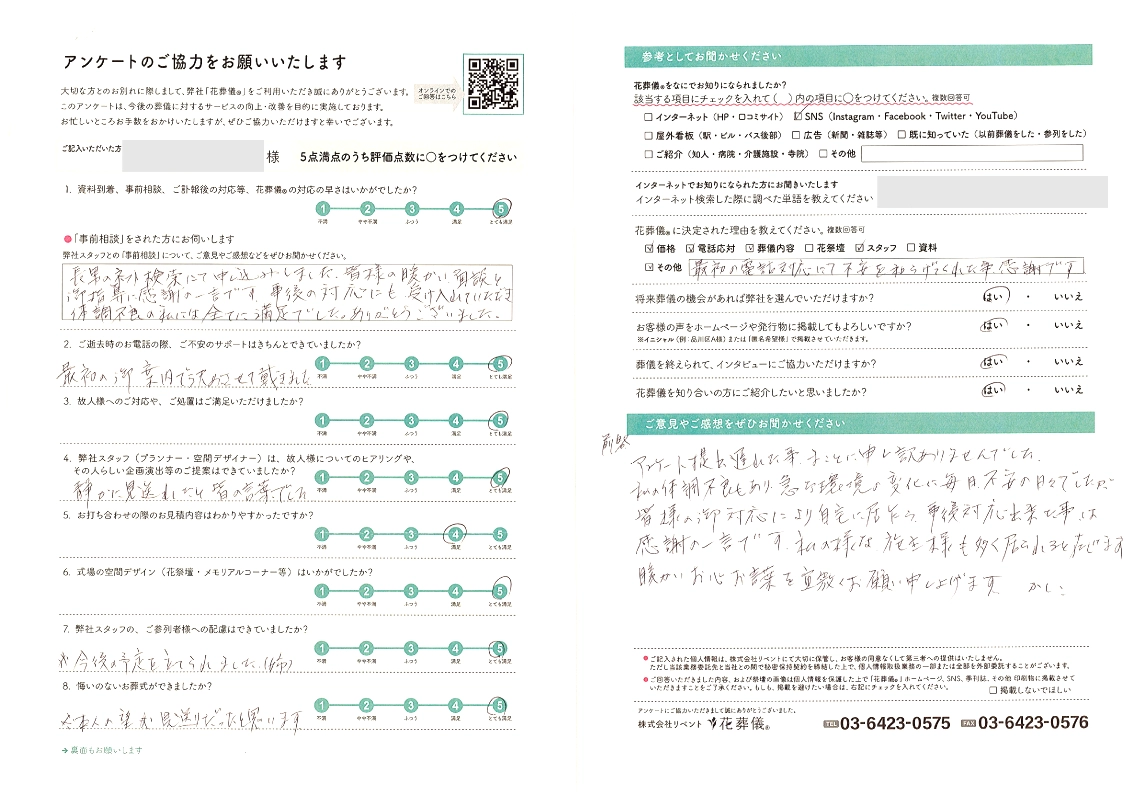 アンケートのご協力をお願いいたします
大切な方とのお別れに際しまして、弊社「花葬儀®」をご利用いただき誠にありがとうございます。
このアンケートは、今後の葬儀に対するサービスの向上・改善を目的に実施しております。
お忙しいところお手数をおかけいたしますが、ぜひご協力いただけますと幸いでございます。
オンラインでの
ご回答はこちら
ご記入いただいた方 様 5点満点のうち評価点数に○をつけてください
1. 資料到着、事前相談、ご訃報後の対応等、花葬儀®の対応の早さはいかがでしたか?
1 2 3 4 5
不満 やや不満 ふつう 満足 とても満足
●「事前相談」をされた方にお伺いします
弊社スタッフとの「事前相談」について、ご意見やご感想などをぜひお聞かせください。
早のネット検索にて申し込みしました。皆様の暖かい
御指導に感謝の一言です。事後の対応にも、受け入れていただき
体調不良の私には全てに満足でした。ありがとうございました。
2. ご逝去時のお電話の際、ご不安のサポートはきちんとできていましたか?
1 2 3 4 5
不満 やや不満 ふつう 満足 とても満足
最初の御案内で させて戴きました
3. 故人様へのご対応や、ご処置はご満足いただけましたか?
1 2 3 4 5
不満 やや不満 ふつう 満足 とても満足
4. 弊社スタッフ(プランナー・空間デザイナー)は、故人様についてのヒアリングや、
その人らしい企画演出等のご提案はできていましたか?
1 2 3 4 5
不満 やや不満 ふつう 満足 とても満足
静かに見送れたと皆の言葉でした
5. お打ち合わせの際のお見積内容はわかりやすかったですか?
1 2 3 4 5
不満 やや不満 ふつう 満足 とても満足
6. 式場の空間デザイン(花祭壇・メモリアルコーナー等)はいかがでしたか?
1 2 3 4 5
不満 やや不満 ふつう 満足 とても満足
7. 弊社スタッフの、ご参列者様への配慮はできていましたか?
1 2 3 4 5
不満 やや不満 ふつう 満足 とても満足
今後の予定を立てられました。(姉)
8. 悔いのないお葬式ができましたか?
1 2 3 4 5
不満 やや不満 ふつう 満足 とても満足
本人の望む見送りだったと思います
→ 裏面もお願いします
参考としてお聞かせください
花葬儀®をなにでお知りになられましたか?
該当する項目にチェックを入れて( )内の項目に○をつけてください。複数回答可
□ インターネット(HP・口コミサイト) ☑ SNS(Instagram・Facebook・Twitter・YouTube)
□ 屋外看板(駅・ビル・バス後部) □ 広告(新聞・雑誌等) □ 既に知っていた(以前葬儀をした・参列をした)
□ ご紹介(知人・病院・介護施設・寺院) □ その他
インターネットでお知りになられた方にお聞きいたします
インターネット検索した際に調べた単語を教えてください
花葬儀®に決定された理由を教えてください。複数回答可
☑ 価格 ☑ 電話応対 ☑ 葬儀内容 □ 花祭壇 ☑ スタッフ □ 資料
☑ その他 最初の電話対応にて不安を和らげてくれた事、感謝です
将来葬儀の機会があれば弊社を選んでいただけますか? はい ・ いいえ
お客様の声をホームページや発行物に掲載してもよろしいですか? はい ・ いいえ
※イニシャル(例:品川区A様)または「匿名希望様」で掲載させていただきます。
葬儀を終えられて、インタビューにご協力いただけますか? はい ・ いいえ
花葬儀を知り合いの方にご紹介したいと思いましたか? はい ・ いいえ
ご意見やご感想をぜひお聞かせください
前略
アンケート提出遅れた事、まことに申し訳ありませんでした。
私の体調不良もあり、急な環境の変化に毎日不安の日々でしたが
皆様の御対応により自宅に居ながら、事後対応出来た事は
感謝の一言です。私の様な施主様も多く居られると存じます
暖かいお心お言葉を宜敷くお願い申し上げます かしこ
●ご記入された個人情報は、株式会社リベントにて大切に保管し、お客様の同意なくして第三者への提供はいたしません。
ただし当該業務委託先と当社との間で秘密保持契約を締結した上で、個人情報取扱業務の一部または全部を外部委託することがございます。
●ご回答いただきました内容、および祭壇の画像は個人情報を保護した上で「花葬儀®」ホームページ、SNS、季刊誌、その他 印刷物に掲載させて
いただきますことをご了承ください。もしも、掲載を避けたい場合は、右記にチェックを入れてください。 □ 掲載しないでほしい
アンケートにご協力いただきまして誠にありがとうございました。
株式会社リベント 花葬儀® TEL 03-6423-0575 FAX 03-6423-0576